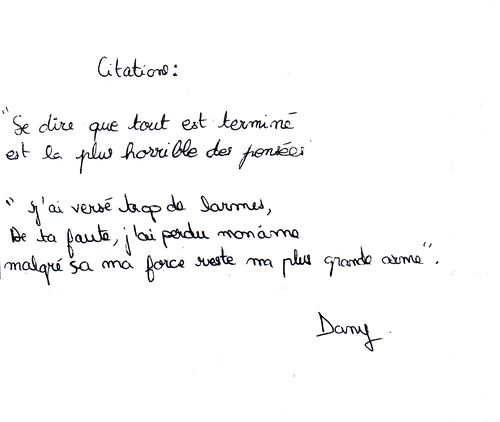 Citations:
"Se dire que tout est terminé
est la plus horrible des pensées
" j'ai versé trop de larmes,
De ta faute, j'ai perdu mon âme
malgré sa ma force reste ma plus grande arme".
Dany.